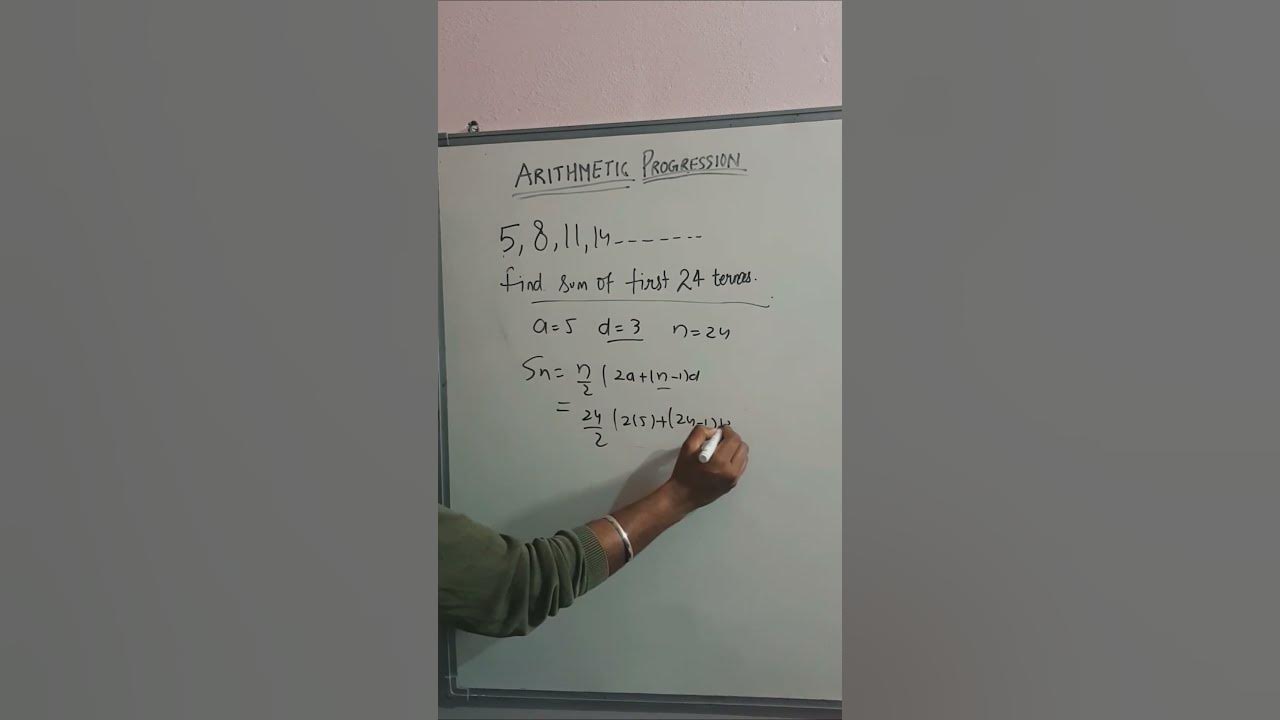 ARITHMETIC PROGRESSION
5, 8, 11, 14 -------
find sum of first 24 terms.
a=5 d=3 n=24
Sn = n/2 (2a+(n-1)d
= 24/2 (2(5)+(24-1)